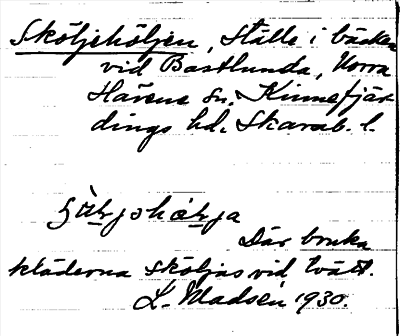 Sköljehöljen, ställe i bäcken
vid Bastlunda, Norra
Härene sn. Kinnefjär-
dings hd. Skarab. l.
Där bruka
kläderna sköljas vid tvätt.
L. Madsén 1930.